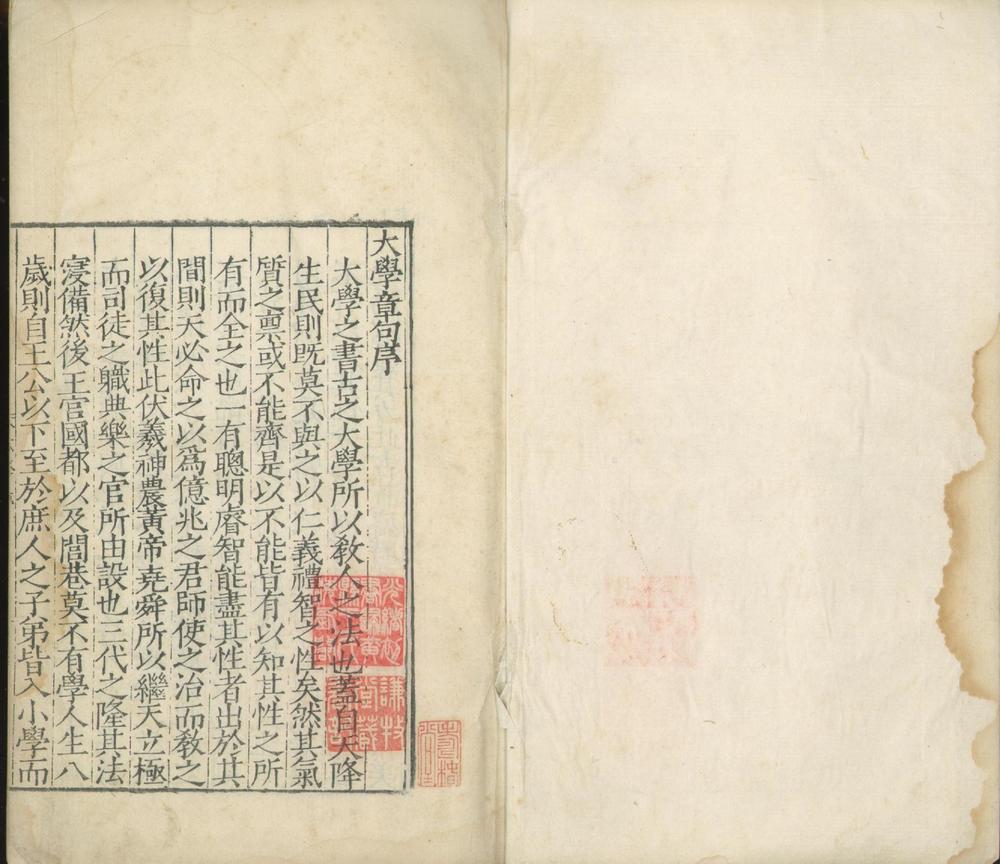 大學章句序
大學之書古之大學所以敎人之法也蓋自天降
生民則旣莫不與之以仁義禮智之性矣然其氣
質之禀或不能齊是以不能皆有以知其性之所
有而全之也一有聰明睿智能盡其性者出於其
間則天必命之以爲億兆之君師使之治而敎之
以復其性此伏羲神農黃帝堯舜所以繼天立極
而司徒之職典樂之官所由設也三代之隆其法
寖備然後王宮國都以及閭巷莫不有學人生八
歲則自王公以下至於庶人之子弟皆入小學而
謙牧堂藏書記